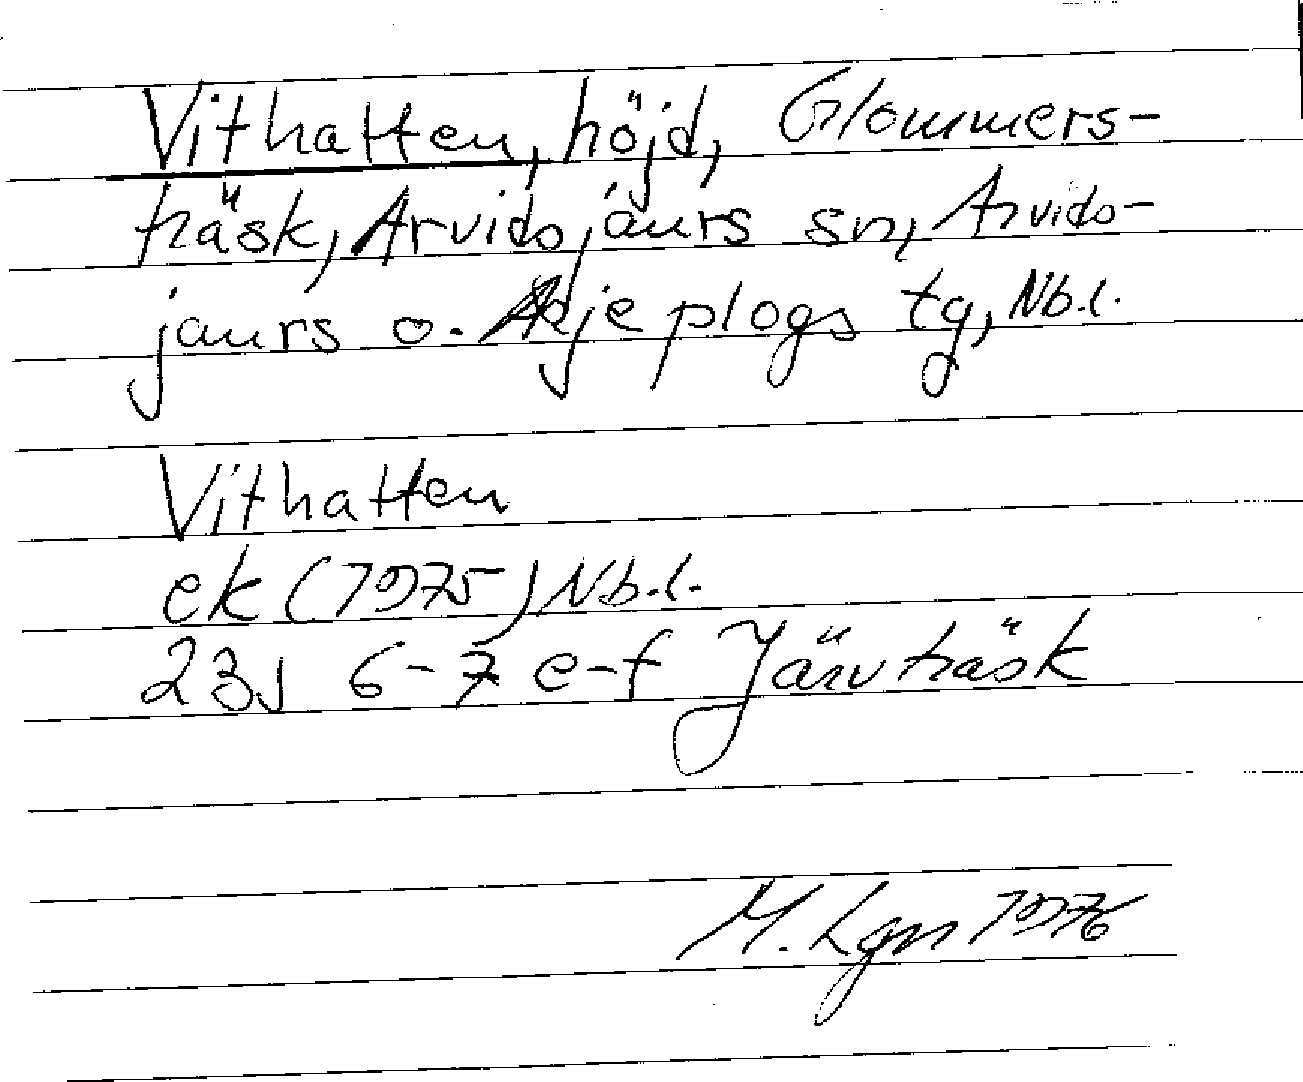 Vithatten, höjd, Glommers-
träsk, Arvidsjaurs sn, Arvids-
jaurs o. Arjeplogs tg, Nb.l.
Vithatten
ek (1975) Nb.l.
23J 6-7 e-f Järvträsk
M. Lgn 1976